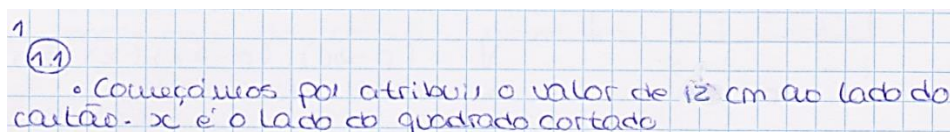 1
1.1
• Começámos por atribuir o valor de 12 cm ao lado do
cartão. x é o lado do quadrado cortado